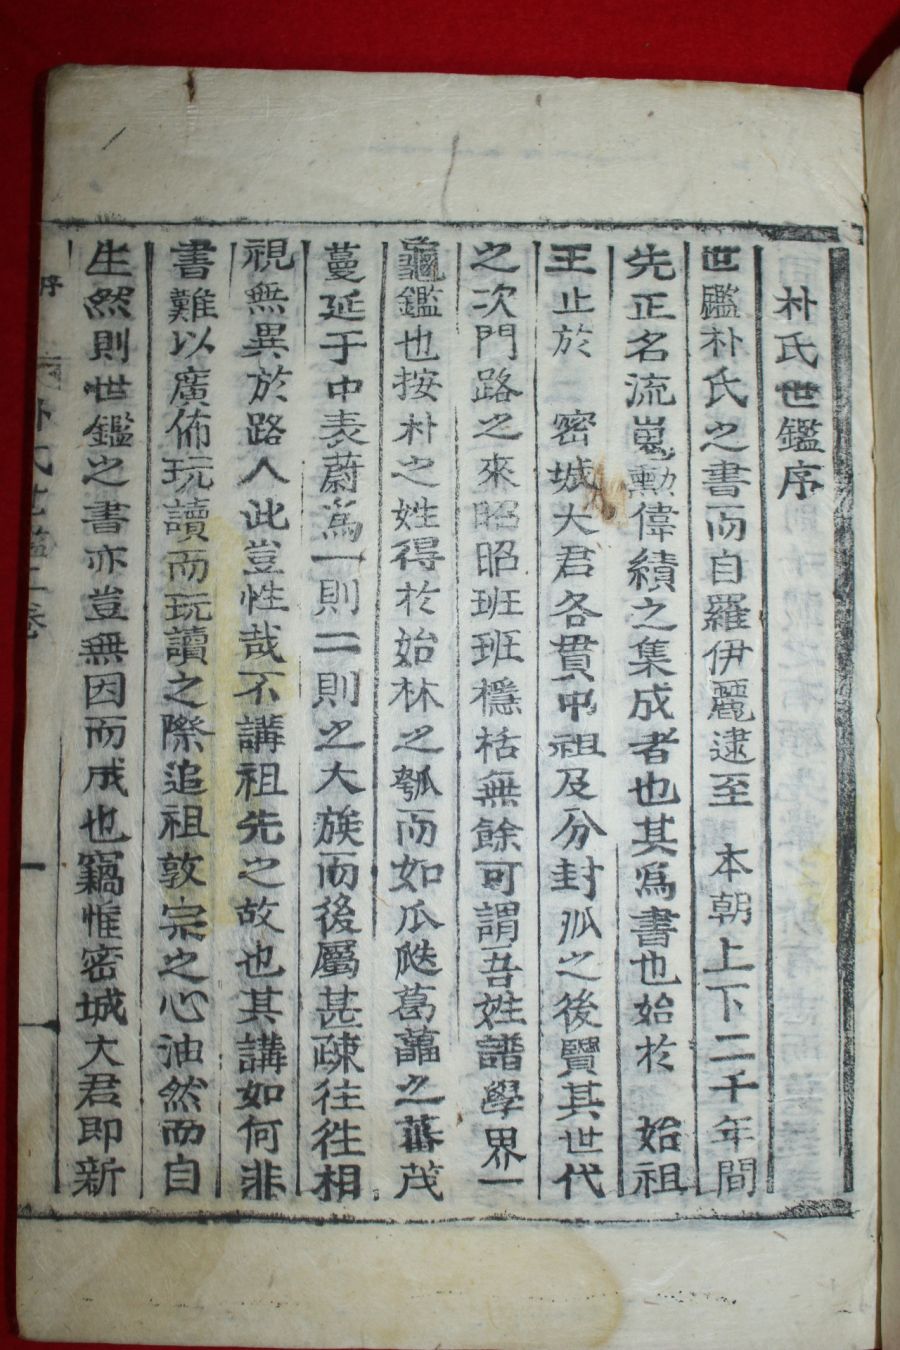 朴氏世鑑序
世鑑朴氏之書而自羅伊麗逮至 本朝上下二千年間
先正名流嵬勳偉績之集成者也其爲書也始於 始祖
王止於 密城大君各貫中祖及分封派之後覽其世代
之次門路之來昭昭班班檃栝無餘可謂吾姓譜學界一
龜鑑也按朴之姓得於始林之瓠而如瓜瓞葛藟之蕃茂
蔓延于中表蔚爲一則二則之大族而後屬甚疎往往相
視無異於路人此豈性哉不講祖先之故也其講如何非
書難以廣佈玩讀而玩讀之際追祖敦宗之心油然而自
生然則世鑑之書亦豈無因而成也竊惟密城大君即新
序
朴氏世鑑
卷
一